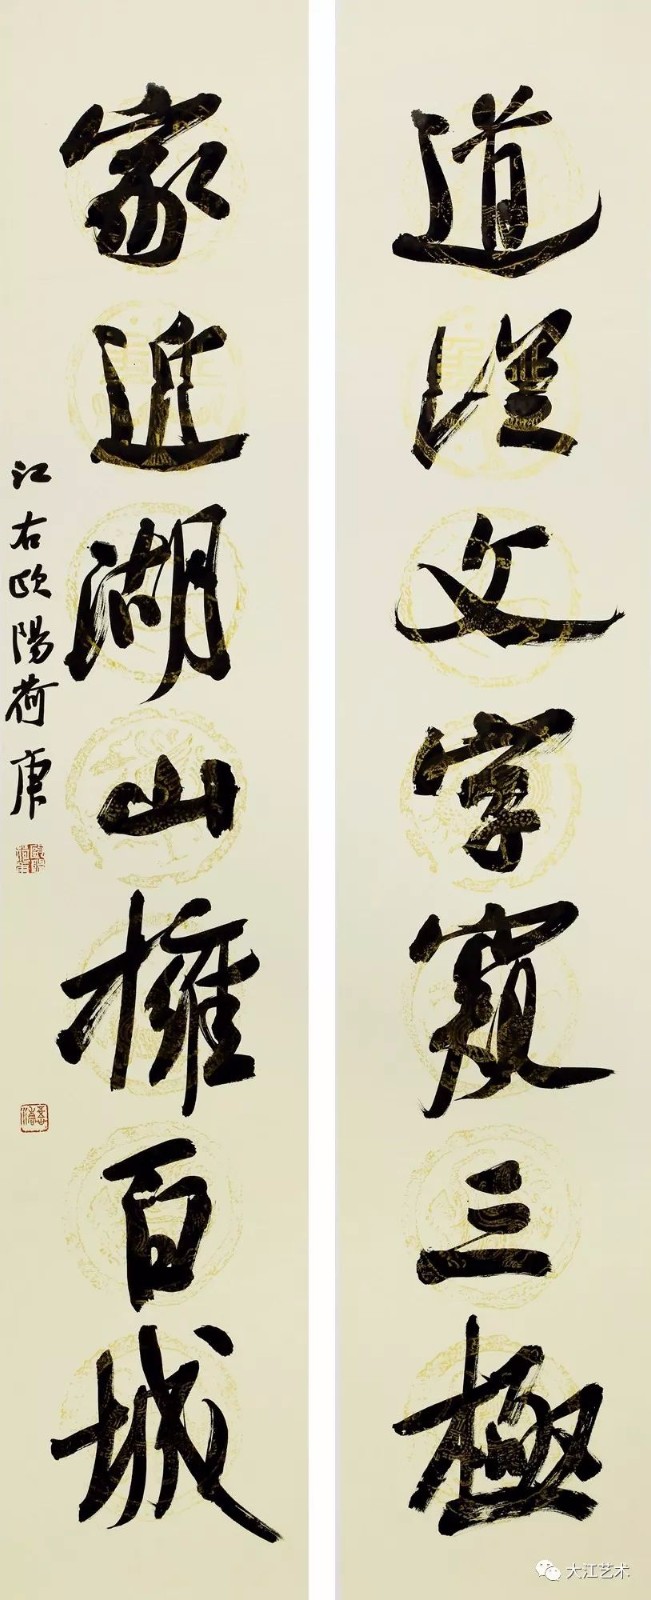 道從文字窺三極
家近湖山擁百城
江右欧陽荷庚
大江艺术